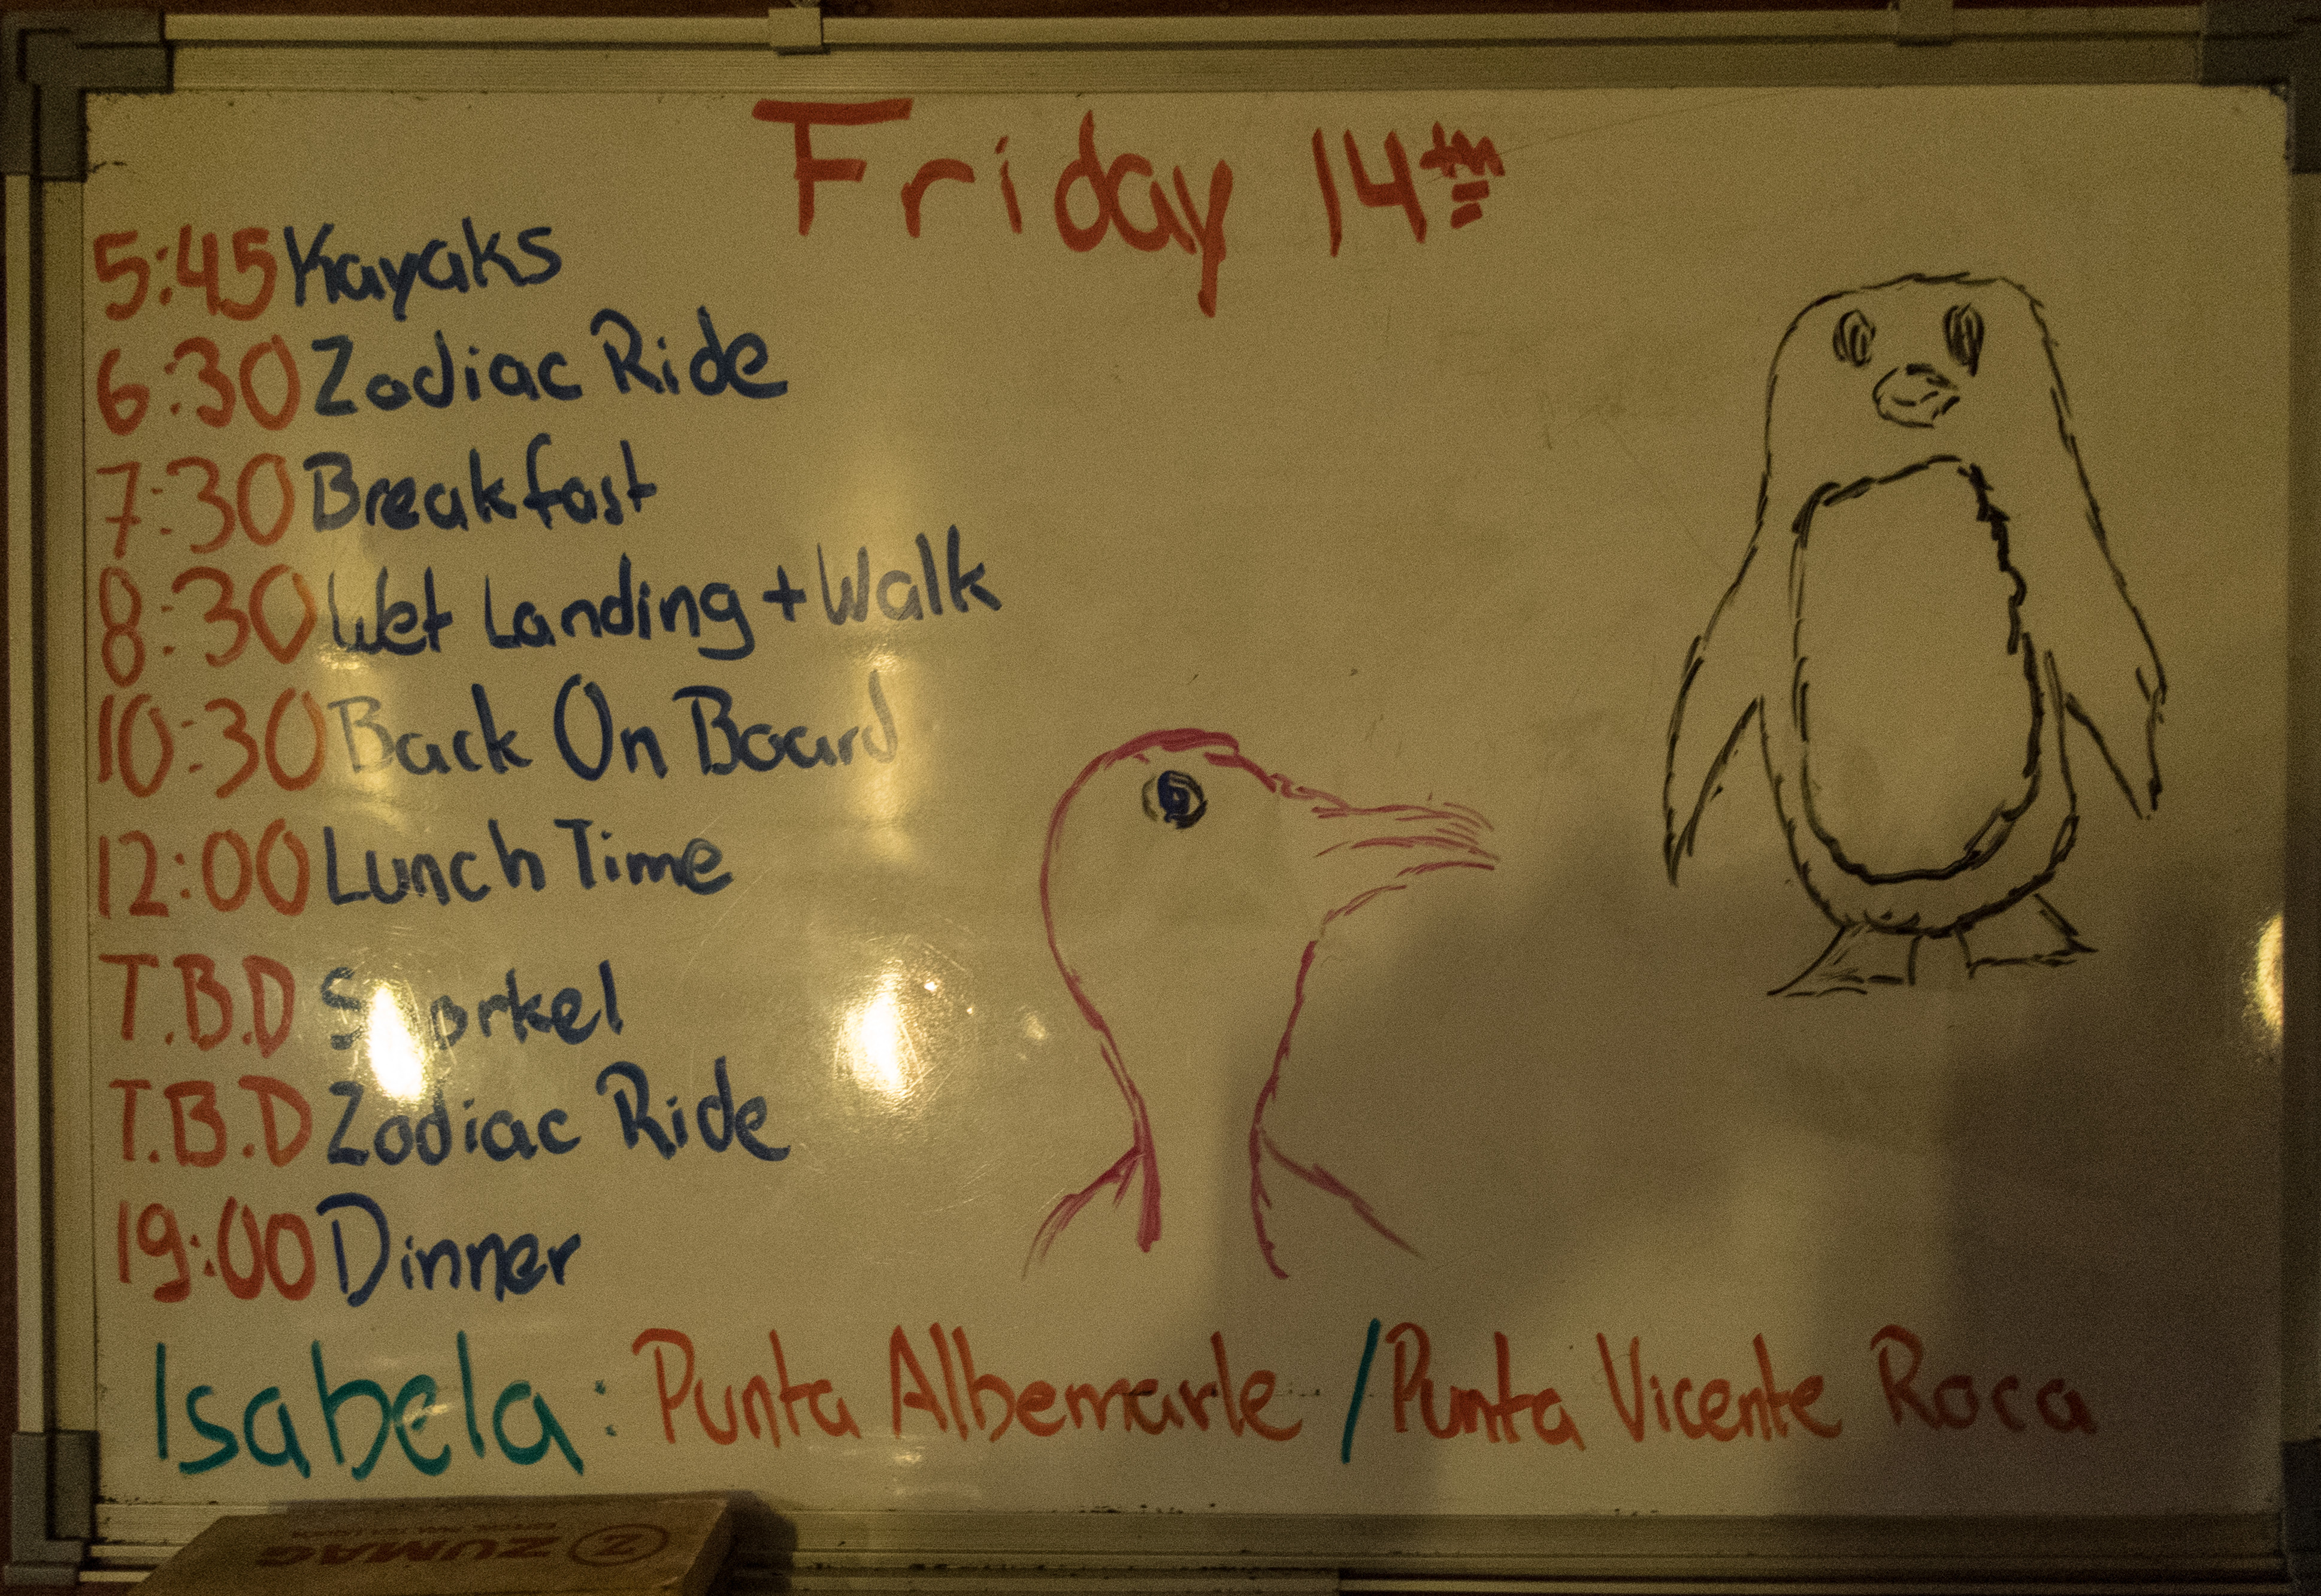 Friday 14th
5:45 Kayaks
6:30 Zodiac Ride
7:30 Breakfast
8:30 Wet Landing + Walk
10:30 Back On Board
12:00 Lunch Time
T.B.D Snorkel
T.B.D Zodiac Ride
19:00 Dinner
Isabela: Punta Albemarle / Punta Vicente Roca
ZUMAG